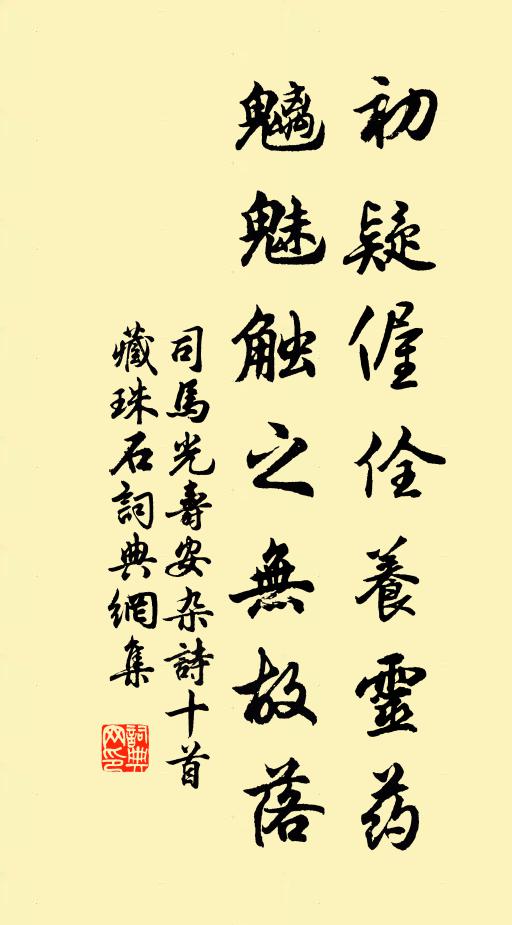 初疑偓佺養靈药
魑魅触之無故落
司馬光壽安杂詩十首
藏珠石詞典網集
詞典
网印